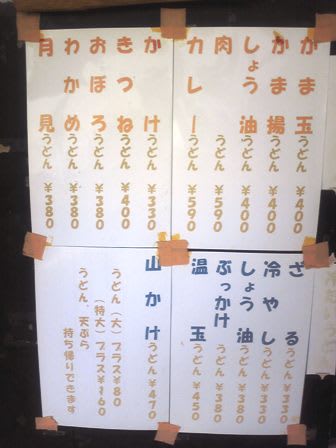 かま玉うどん ¥400
かま揚うどん ¥400
しょう油うどん ¥400
肉うどん ¥590
カレーうどん ¥590
かけうどん ¥330
きつねうどん ¥400
おぼろうどん ¥380
わかめうどん ¥380
月見うどん ¥380
ざるうどん ¥330
冷やしうどん ¥330
しょう油うどん ¥380
ぶっかけうどん ¥380
温玉うどん ¥450
山かけうどん ¥470
うどん(大)プラス¥80
(特大)プラス¥160
うどん、天ぷら
持ち帰りできます